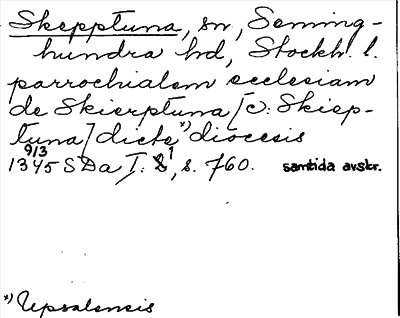 Skepptuna, sn, Seming-
hundra hd, Stockh. l.
parrochialem ecclesiam
de Skierptuna [c: Skiep-
tuna] dicte x) diocesis
1345 9/3 SDa I: 1, s. 760. samtida avskr.
x) Upsalensis